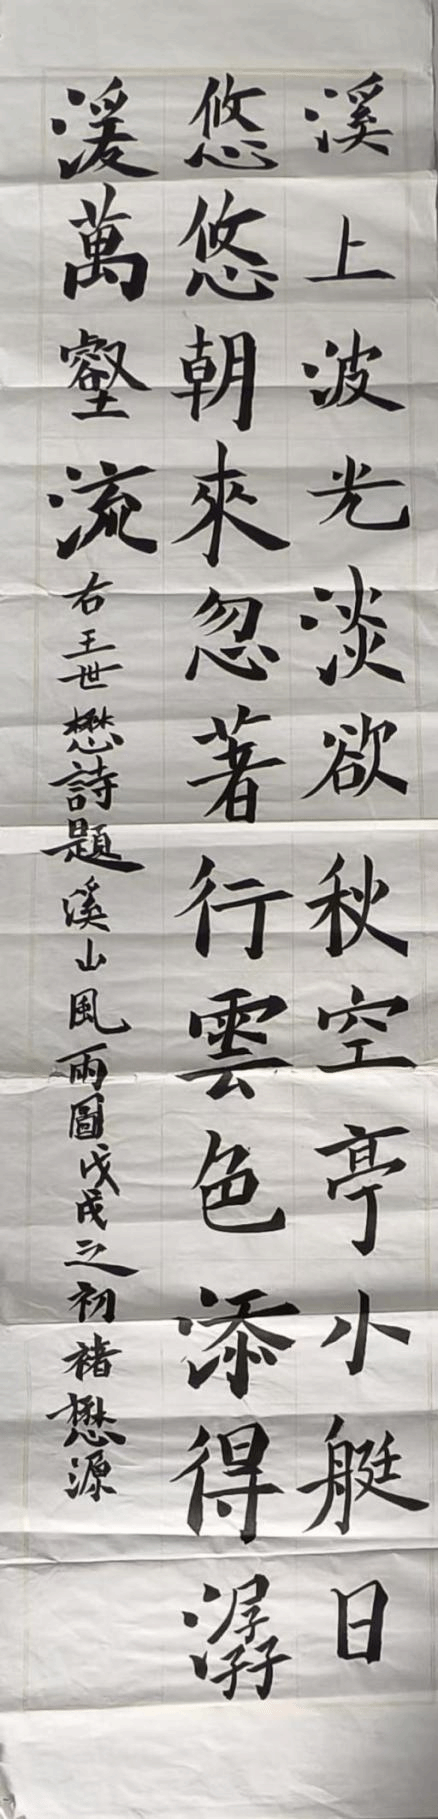 溪上波光淡欲秋空亭小艇日
悠悠朝來忽著行雲色添得潺
湲萬壑流
右王世懋詩題溪山風雨圖戊戌之初褚懋源